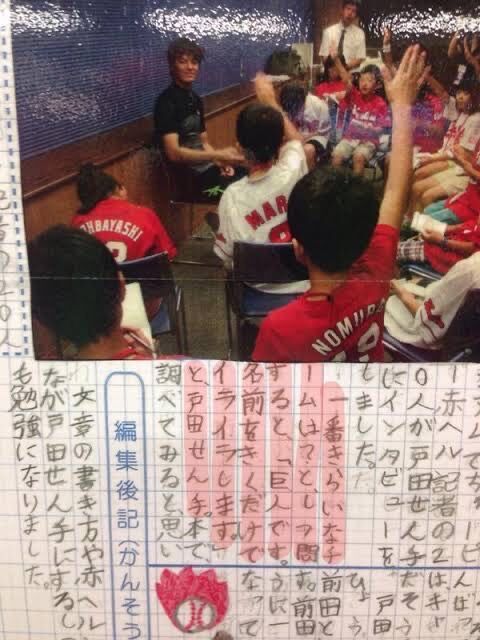 HBAYASHI
MAR
NOMURA
ー赤ヘル記者の2
0人が戸田せん手
にインタビューを
しました。
一番きらいなチ
ームは?」としつ問
すると、「巨人です。
名前をきくだけで
イライラします。」
と、戸田せん手。本で
調べてみると、思い
んばっ
はきょ
だそう
戸田
ひょ
前田と
す。前田
うに一
なって
編集後記(かんそう
文章の書き方や赤ヘル
なが戸田せん手にするし
も勉強になりました。